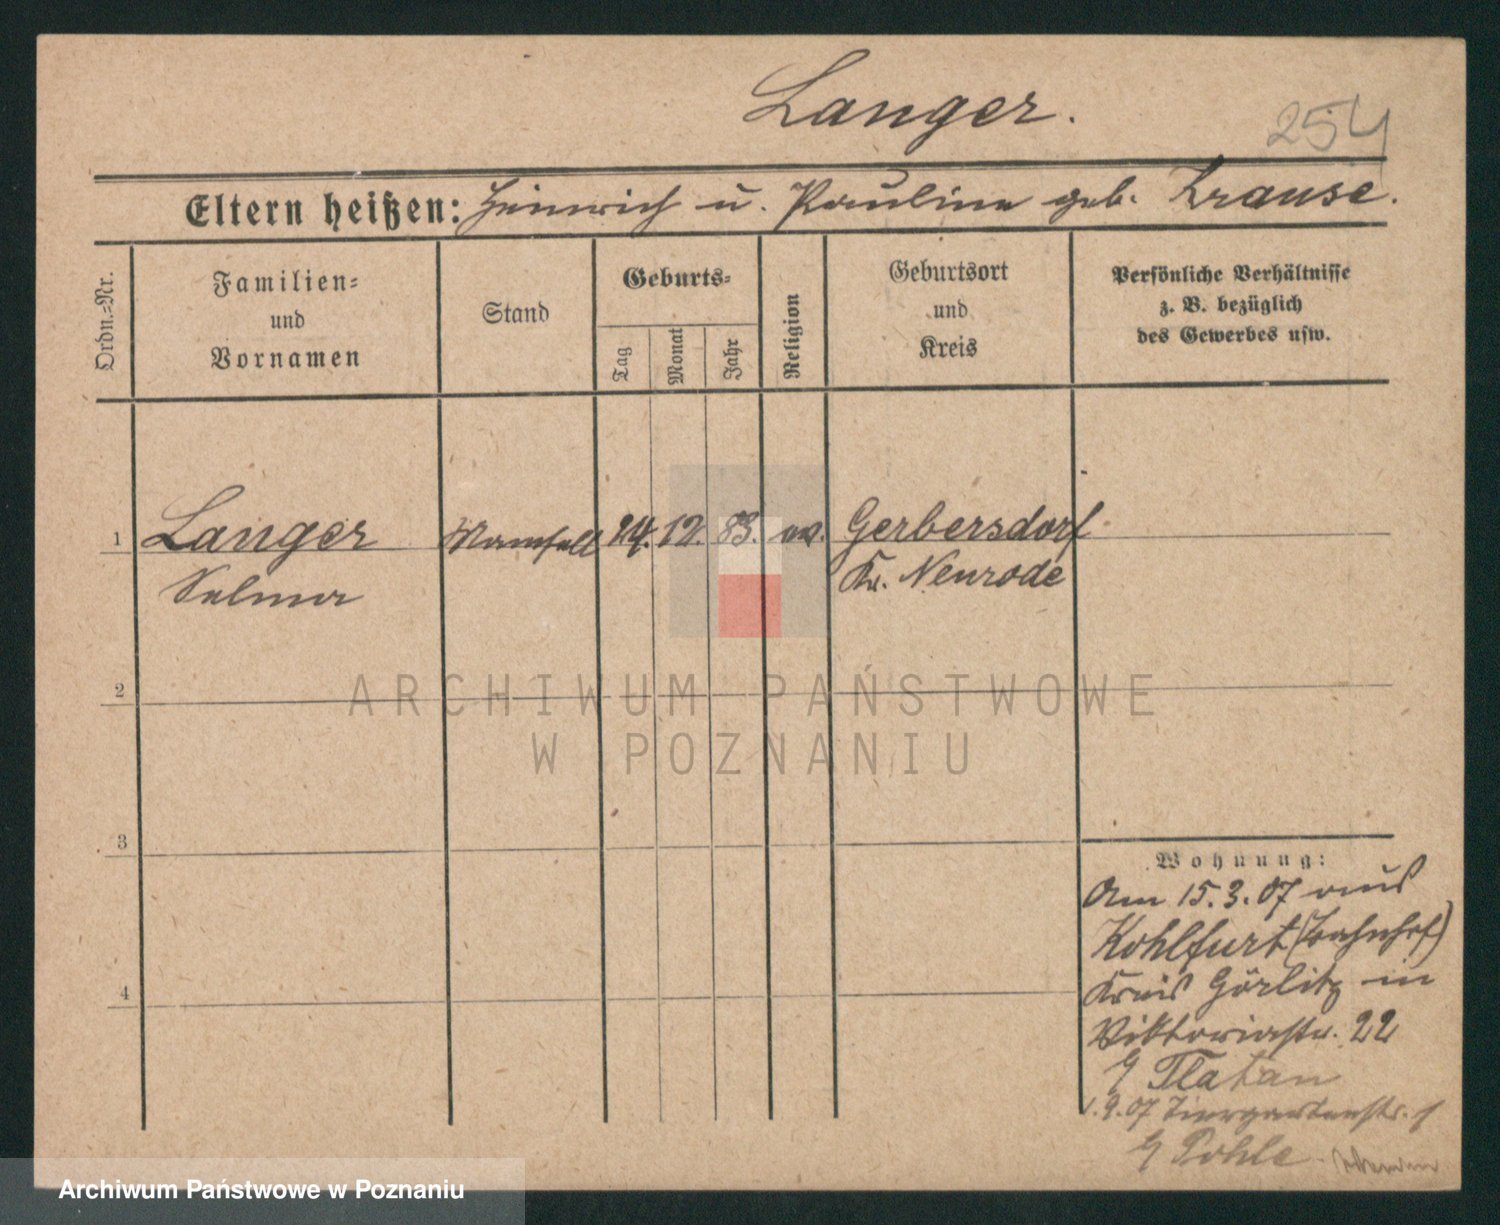 Langer.
254
Eltern heißen: Heinrich u. Pauline geb. Krause.
Ordn.=Nr.
Familien=
und
Vornamen
Stand
Geburts=
Tag
Monat
Jahr
Religion
Geburtsort
und
Kreis
Persönliche Verhältnisse
z. B. bezüglich
des Gewerbes usw.
1 Langer Mamsell 24. 12. 83. ev. Gerbersdorf
Selma Kr. Neurode
2
3
4
Wohnung:
Am 15.3.07 aus
Kohlfurt (Bahnhof)
Kreis Görlitz in
Viktoriastr. 22
Platan
1.9.07 Tiergartenstr. 1
Pohle
ARCHIWUM PAŃSTWOWE
W POZNANIU
Archiwum Państwowe w Poznaniu